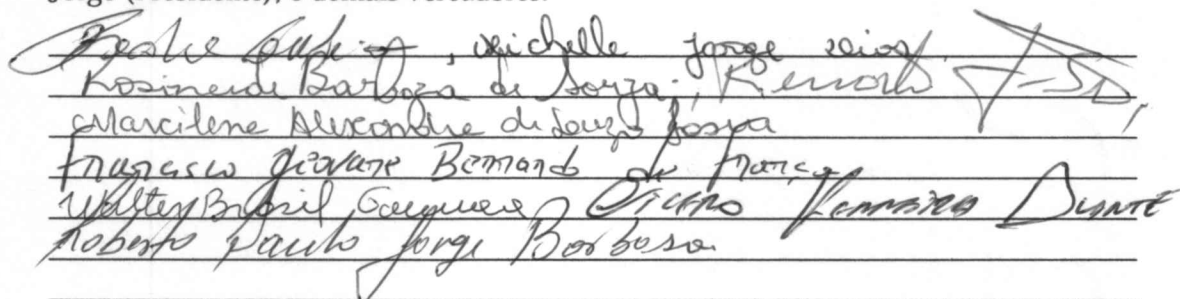 Jorge (Presidente), e demais vereadores.
, Michelle Jorge
Rosineide Barboza de Souza, Renato
Marcilene Alexandre de Souza
Francisco Geovane Bernardo de França
Walter Brasil Cicero Ferreira Duarte
Roberto Paulo Jorge Barbosa